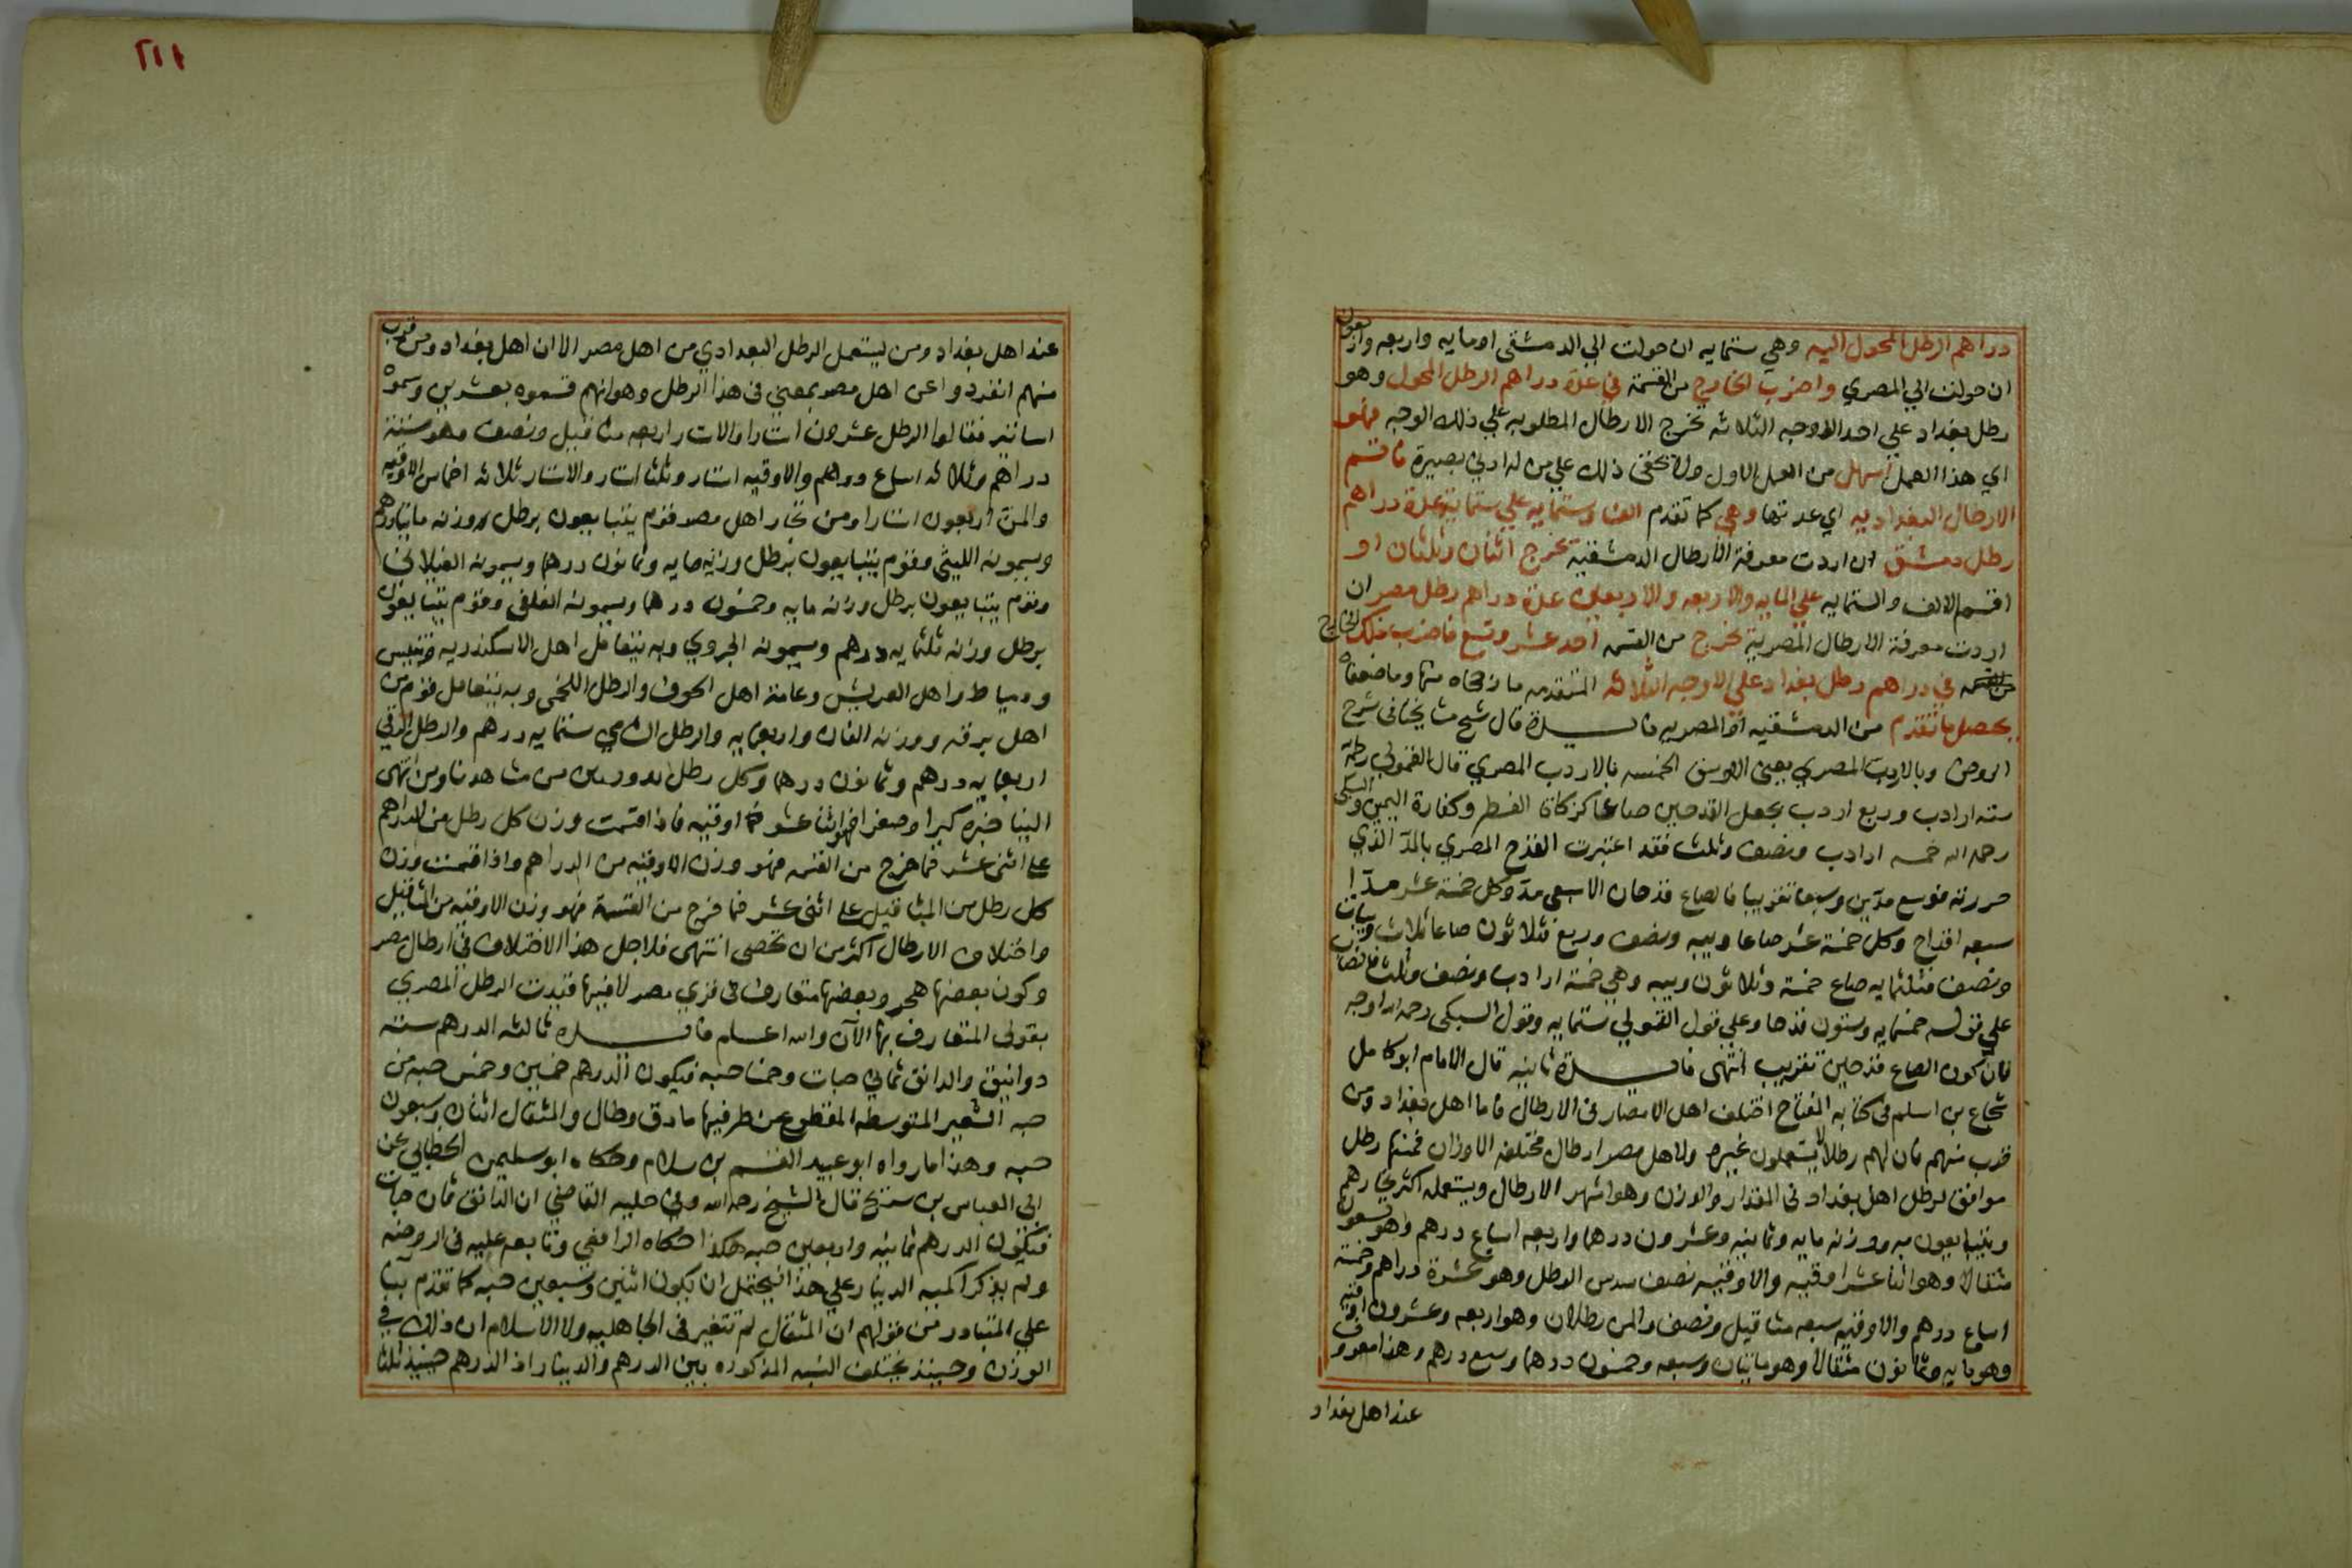 دراهم الرطل المحول اليه وهي ستمايه ان حولت الي الدمشقى او مايه واربعه واربعون
ان حولت الي المصري واضرب الخارج من القسمة في عدة دراهم الرطل المحول وهو
رطل بغداد علي احد الاوجه الثلاثه تخرج الارطال المطلوبه علي ذلك الوجه فهو
اي هذا العمل اسهل من العمل الاول ولا يخفى ذلك علي من له ادني بصيرة فاقسم
الارطال البغداديه اي عدتها وهي كما تقدم الف وستمايه علي ستماية عدة دراهم
رطل دمشق ان اردت معرفة الارطال الدمشقيه تخرج اثنان وثلثان او
اقسم الالف والستمايه علي المايه والاربعه والاربعين عدة دراهم رطل مصر ان
اردت معرفة الارطال المصرية تخرج من القسمه احد عشر وتسع فاضرب ذلك الخارج
من القسمه في دراهم رطل بغداد علي الاوجه الثلاثه المتقدمه ما رجحاه منها وما ضعفاه
يحصل ما تقدم من الدمشقيه او المصريه فايدة قال شيخ مشايخنا في شرح
الروض وبالاردب المصري يعنى الاوسق الخمسه بالاردب المصري قال القمولي رطل
سته ارادب وربع اردب بجعل القدحين صاعا كزكاة الفطر وكفارة اليمين والسبكى
رحمه الله خمسه ارادب ونصف وثلث فقد اعتبرت القدح المصري بالمد الذي
حررته فوسع مدين وسبعا تقريبا فالصاع قدحان الا سبعى مد وكل خمسة عشر مدا
سبعه اقداح وكل خمسة عشر صاعا ويبه ونصف وربع فثلاثون صاعا ثلاث ويبات
ونصف فثلثمايه صاع خمسة وثلاثون ويبه وهي خمسة ارادب ونصف وثلث فالنصاب
علي قوله خمسمايه وستون قدحا وعلي قول القمولي ستمايه وقول السبكى رحمه الله اوجه
فان كون الصاع قدحين تقريب انتهى فايدة ثانيه قال الامام ابو كامل
شجاع بن اسلم في كتابه المفتاح اختلف اهل الامصار في الارطال فاما اهل بغداد ومن
قرب منهم فان لهم رطلا لا يستعملون غيره ولاهل مصر ارطال مختلفه الاوزان فمنها رطل
موافق لرطل اهل بغداد في المقدار والوزن وهو اشهر الارطال ويستعمله اكثر تجارهم
ويتبايعون به ووزنه مايه وثمانيه وعشرون درهما واربعه اسباع درهم وهو تسعون
مثقالا وهو اثنا عشر اوقيه والاوقيه نصف سدس الرطل وهو عشرة دراهم وخمسة
اسباع درهم والاوقيه سبعه مثاقيل ونصف والمن رطلان وهو اربعه وعشرون اوقيه
وهو مايه وثمانون مثقالا وهو مائتان وسبعه وخمسون درهما وسبع درهم وهذا معروف
عند اهل بغداد
٢١١
عند اهل بغداد ومن يستعمل الرطل البغدادي من اهل مصر الا ان اهل بغداد ومن قرب
منهم انفردوا عن اهل مصر بمعني في هذا الرطل وهو انهم قسموه بعشرين وسموه
اساتير فقالوا الرطل عشرون استارا والاستار اربعه مثاقيل ونصف وهو ستة
دراهم وثلاثة اسباع درهم والاوقيه استار وثلثا استار والاستار ثلاثه اخماس الاوقيه
والمن اربعون استارا ومن تجار اهل مصر قوم يتبايعون برطل وزنه مائتا درهم
ويسمونه الليثي وقوم يتبايعون برطل وزنه مايه وثمانون درهما ويسمونه الفيلاني
وقوم يتبايعون برطل وزنه مايه وخمسون درهما ويسمونه الفلفلى وقوم يتبايعون
برطل وزنه ثلثمايه درهم ويسمونه الجروي وبه يتعامل اهل الاسكندريه وتنيس
ودمياط واهل العريش وعامة اهل الحوف والرطل اللخمى وبه يتعامل قوم من
اهل برقه ووزنه الفان واربعمايه والرطل الشامي ستمايه درهم والرطل
اربعمايه درهم وثمانون درهما وكل رطل من مشاهدنا ومن انتهى
الينا خبره كبرا وصغرا فهو اثنا عشر اوقيه فاذا قسمت وزن كل رطل من الدراهم
علي اثنى عشر فما خرج من القسمه فهو وزن الاوقيه من الدراهم واذا قسمت وزن
كل رطل من المثاقيل علي اثنى عشر فما خرج من القسمة فهو وزن الاوقيه من المثاقيل
واختلاف الارطال اكثر من ان تحصى انتهى فلاجل هذا الاختلاف في ارطال مصر
وكون بعضها هجر وبعضها متعارف في قري مصر لا فيها قيدت الرطل المصري
بقولى المتعارف بها الآن والله اعلم فايدة ثالثه الدرهم سته
دوانيق والدانق ثماني حبات وخمسا حبه فيكون الدرهم خمسين وخمس حبه من
حبه الشعير المتوسطه المقطوع من طرفيها مادق وطال والمثقال اثنان وسبعون
حبه وهذا ما رواه ابو عبيد القسم بن سلام وحكاه ابو سليمن الخطابي عن
ابى العباس بن سريج قال الشيخ رحمه الله وفي حليه القاضي ان الدانق ثمان حبات
فيكون الدرهم ثمانيه واربعين حبه هكذا حكاه الرافعي وتابعه عليه في الروضه
ولم يذكرا كميه الدينار علي هذا فيحتمل ان يكون اثنين وسبعين حبه كما تقدم بنا
علي المتبادر من قولهم ان المثقال لم تتغير في الجاهليه ولا الاسلام ان ذلك في
الوزن وحينئذ يختلف النسبه المذكوره بين الدرهم والدينار اذ الدرهم حينئذ ثلثا